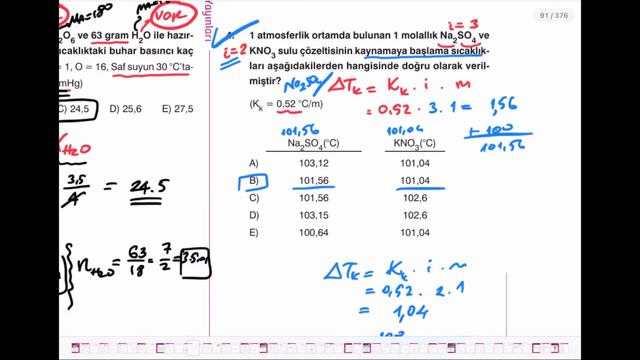 91 / 376
MA=180
VOR
Yayınları
O₆ ve 63 gram H₂O ile hazır-
caklıktaki buhar basıncı kaç
= 1, O = 16, Saf suyun 30 °C'ta-
mHg)
C) 24,5 D) 25,6 E) 27,5
H₂O
3,5
= 24.5
n H₂O = 63/18 = 7/2 = 3.5 mol
i = 3
1 atmosferlik ortamda bulunan 1 molallık Na₂SO₄ ve
i = 2
KNO₃ sulu çözeltisinin kaynamaya başlama sıcaklık-
ları aşağıdakilerden hangisinde doğru olarak veril-
miştir?
Na₂SO₄
ΔTk = Kk . i . m
(Kk = 0,52 °C/m)
= 0,52 . 3 . 1 = 1,56
+ 100
101,56
101,56 101,04
Na₂SO₄(°C) KNO₃(°C)
A) 103,12 101,04
B) 101,56 101,04
C) 101,56 102,6
D) 103,15 102,6
E) 100,64 101,04
ΔTk = Kk . i . m
= 0,52 . 2 . 1
= 1,04